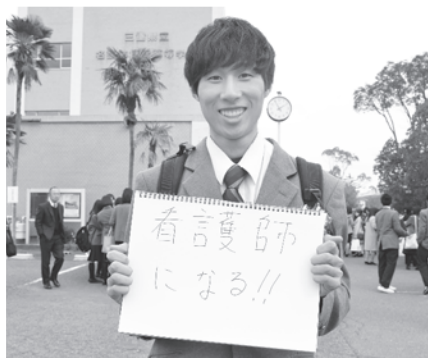 看護師
になる!!